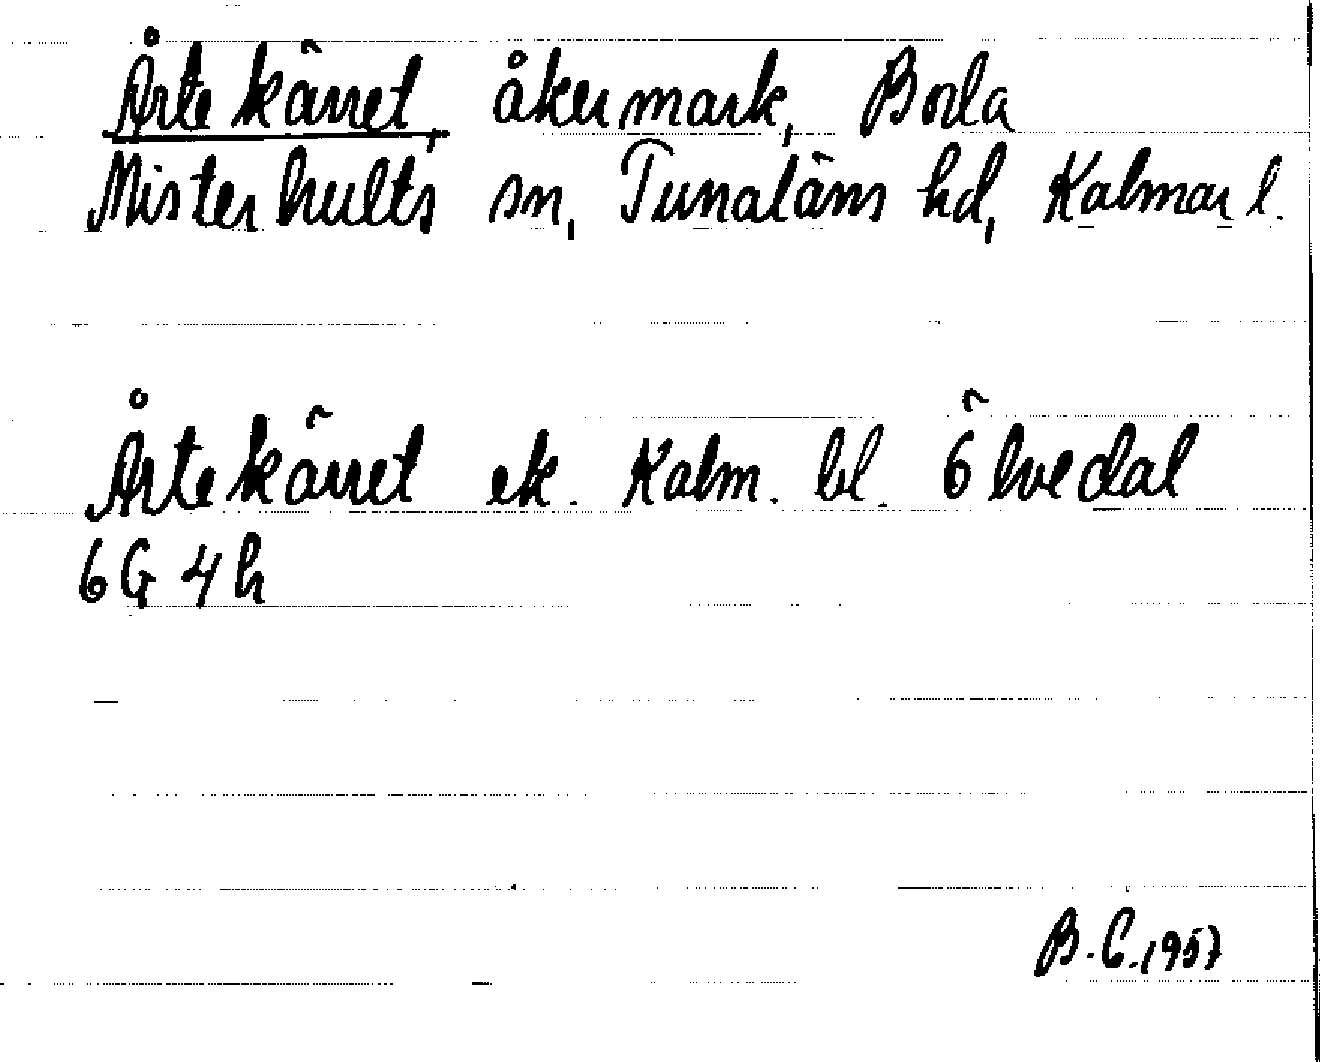 Årtekärret, åkermark, Borla
Misterhults sn, Tunaläns hd, Kalmar l.
Årtekärret ek. Kalm. bl. Ölvedal
6G 4h
B.C. 1957